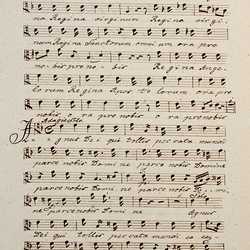 na Regina virginum Regina virgi-
num Regina Sanctorum omnium ora pro
no-bis pro no-bis Regina Ange-
lorum Regina Apos to lorum ora pro
nobis ora pro nobis o ra pro nobis
Agnus Dei qui tollis peccata mundi
parce nobis Domine parce nobis Domine
parce nobis Domi ne parce nobis Do-mi-
ne parce nobis Domi ne Agnus
Dei qui tollis peccata mundi